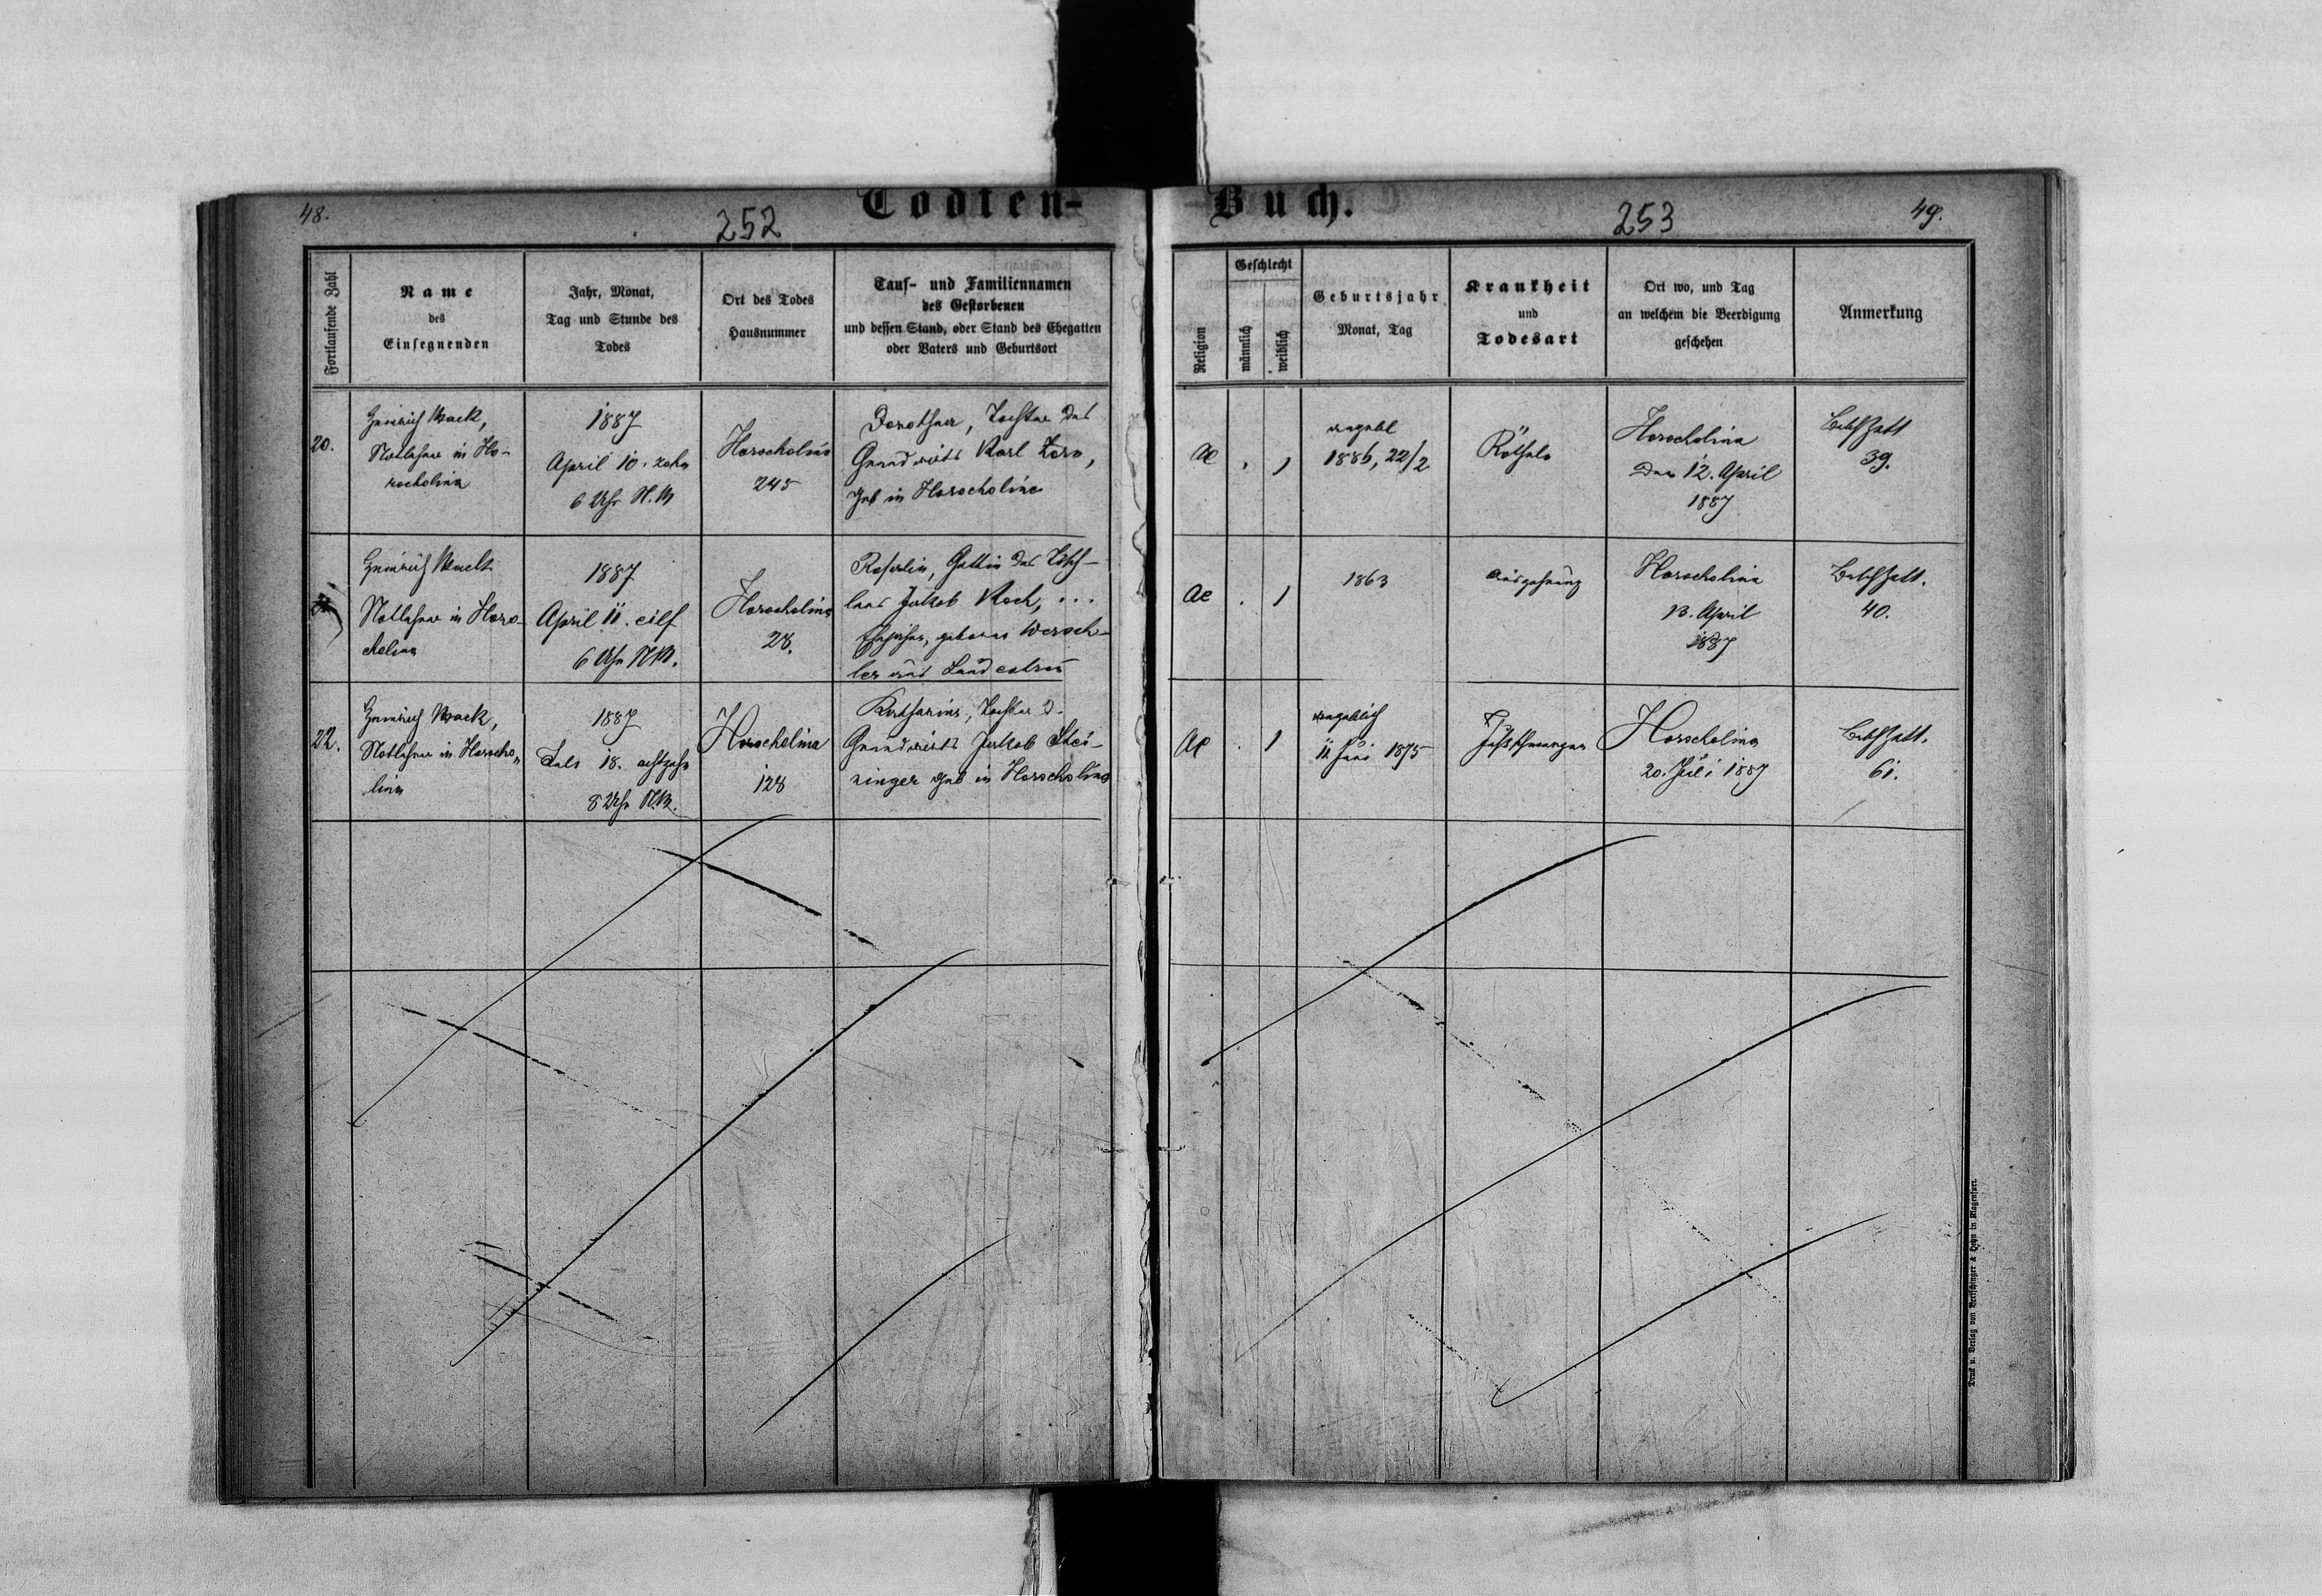 48.
252
Todten-
Buch.
253
49.
Fortlaufende Zahl
Name
des
Einsegnenden
Jahr, Monat,
Tag und Stunde des
Todes
Ort des Todes
Hausnummer
Tauf- und Familiennamen
des Gestorbenen
und dessen Stand, oder Stand des Ehegatten
oder Vaters und Geburtsort
Religion
Geschlecht
männlich
weiblich
Geburtsjahr
Monat, Tag
Krankheit
und
Todesart
Ort wo, und Tag
an welchem die Beerdigung
geschehen
Anmerkung
20.
Heinrich Mack,
Notlehrer in Ho-
rocholina
1887
April 10. zehn
6 Uhr N.M
Horocholina
245
Dorothea, Tochter des
Grundwirts Karl
geb in Horocholina
ae
1
angebl
1886, 22/2
Rötheln
Horocholina
den 12. April
1887
39.
Heinrich Mack
Notlehrer in Horo-
cholina
1887
April 11. eilf
6 Uhr N.M.
Horocholina
28.
Rosalia, Gattin des
Jakob Koch, ...
geborne Wersch-
ler aus Landestreu
ae
1
1863
Auszehrung
Horocholina
13. April
1887
40.
22.
Heinrich Mack,
Notlehrer in Horocho-
lina
1887
Juli 18. achtzehn
8 Uhr N.M.
Horocholina
128
Katharina, Tochter d.
Grundwirts Jakob Stei-
ninger geb in Horocholina
ae
1
angeblich
11. Juni 1875
Horocholina
20. Juli 1887
61.
Druck u. Verlag von Bertschinger & Heyn in Klagenfurt.